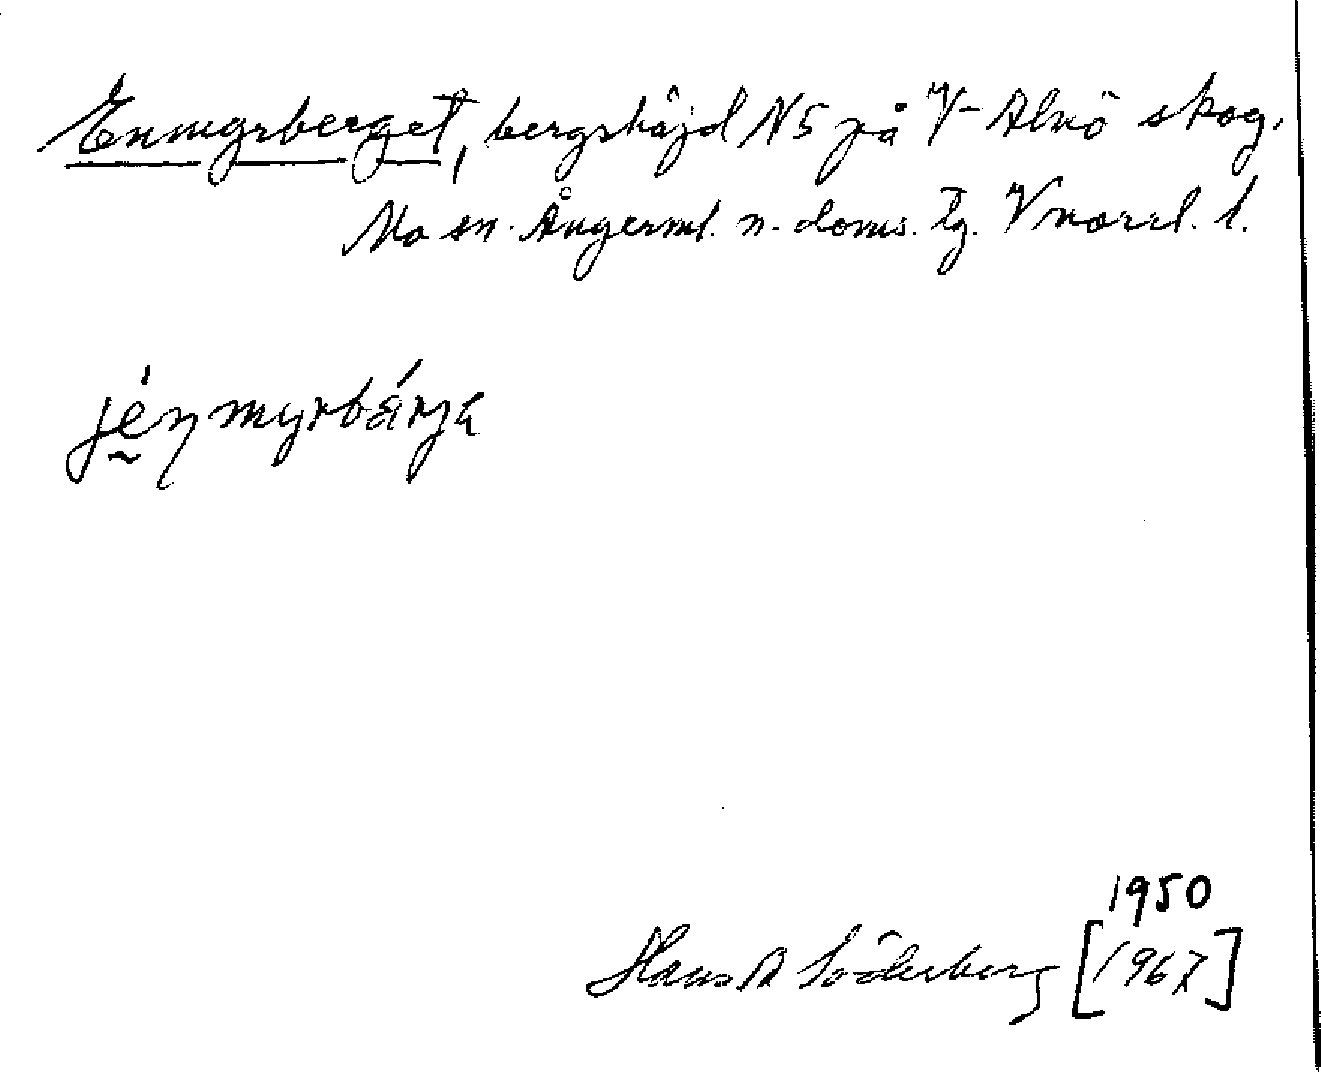 Enmyrberget, bergshöjd N5 på V Alnö skog,
Mo sn. Ångerml. n. doms. tg. Vnorrl. l.
ję́ŋmyrbá́rja
Hans A Söderberg [1967]
1950